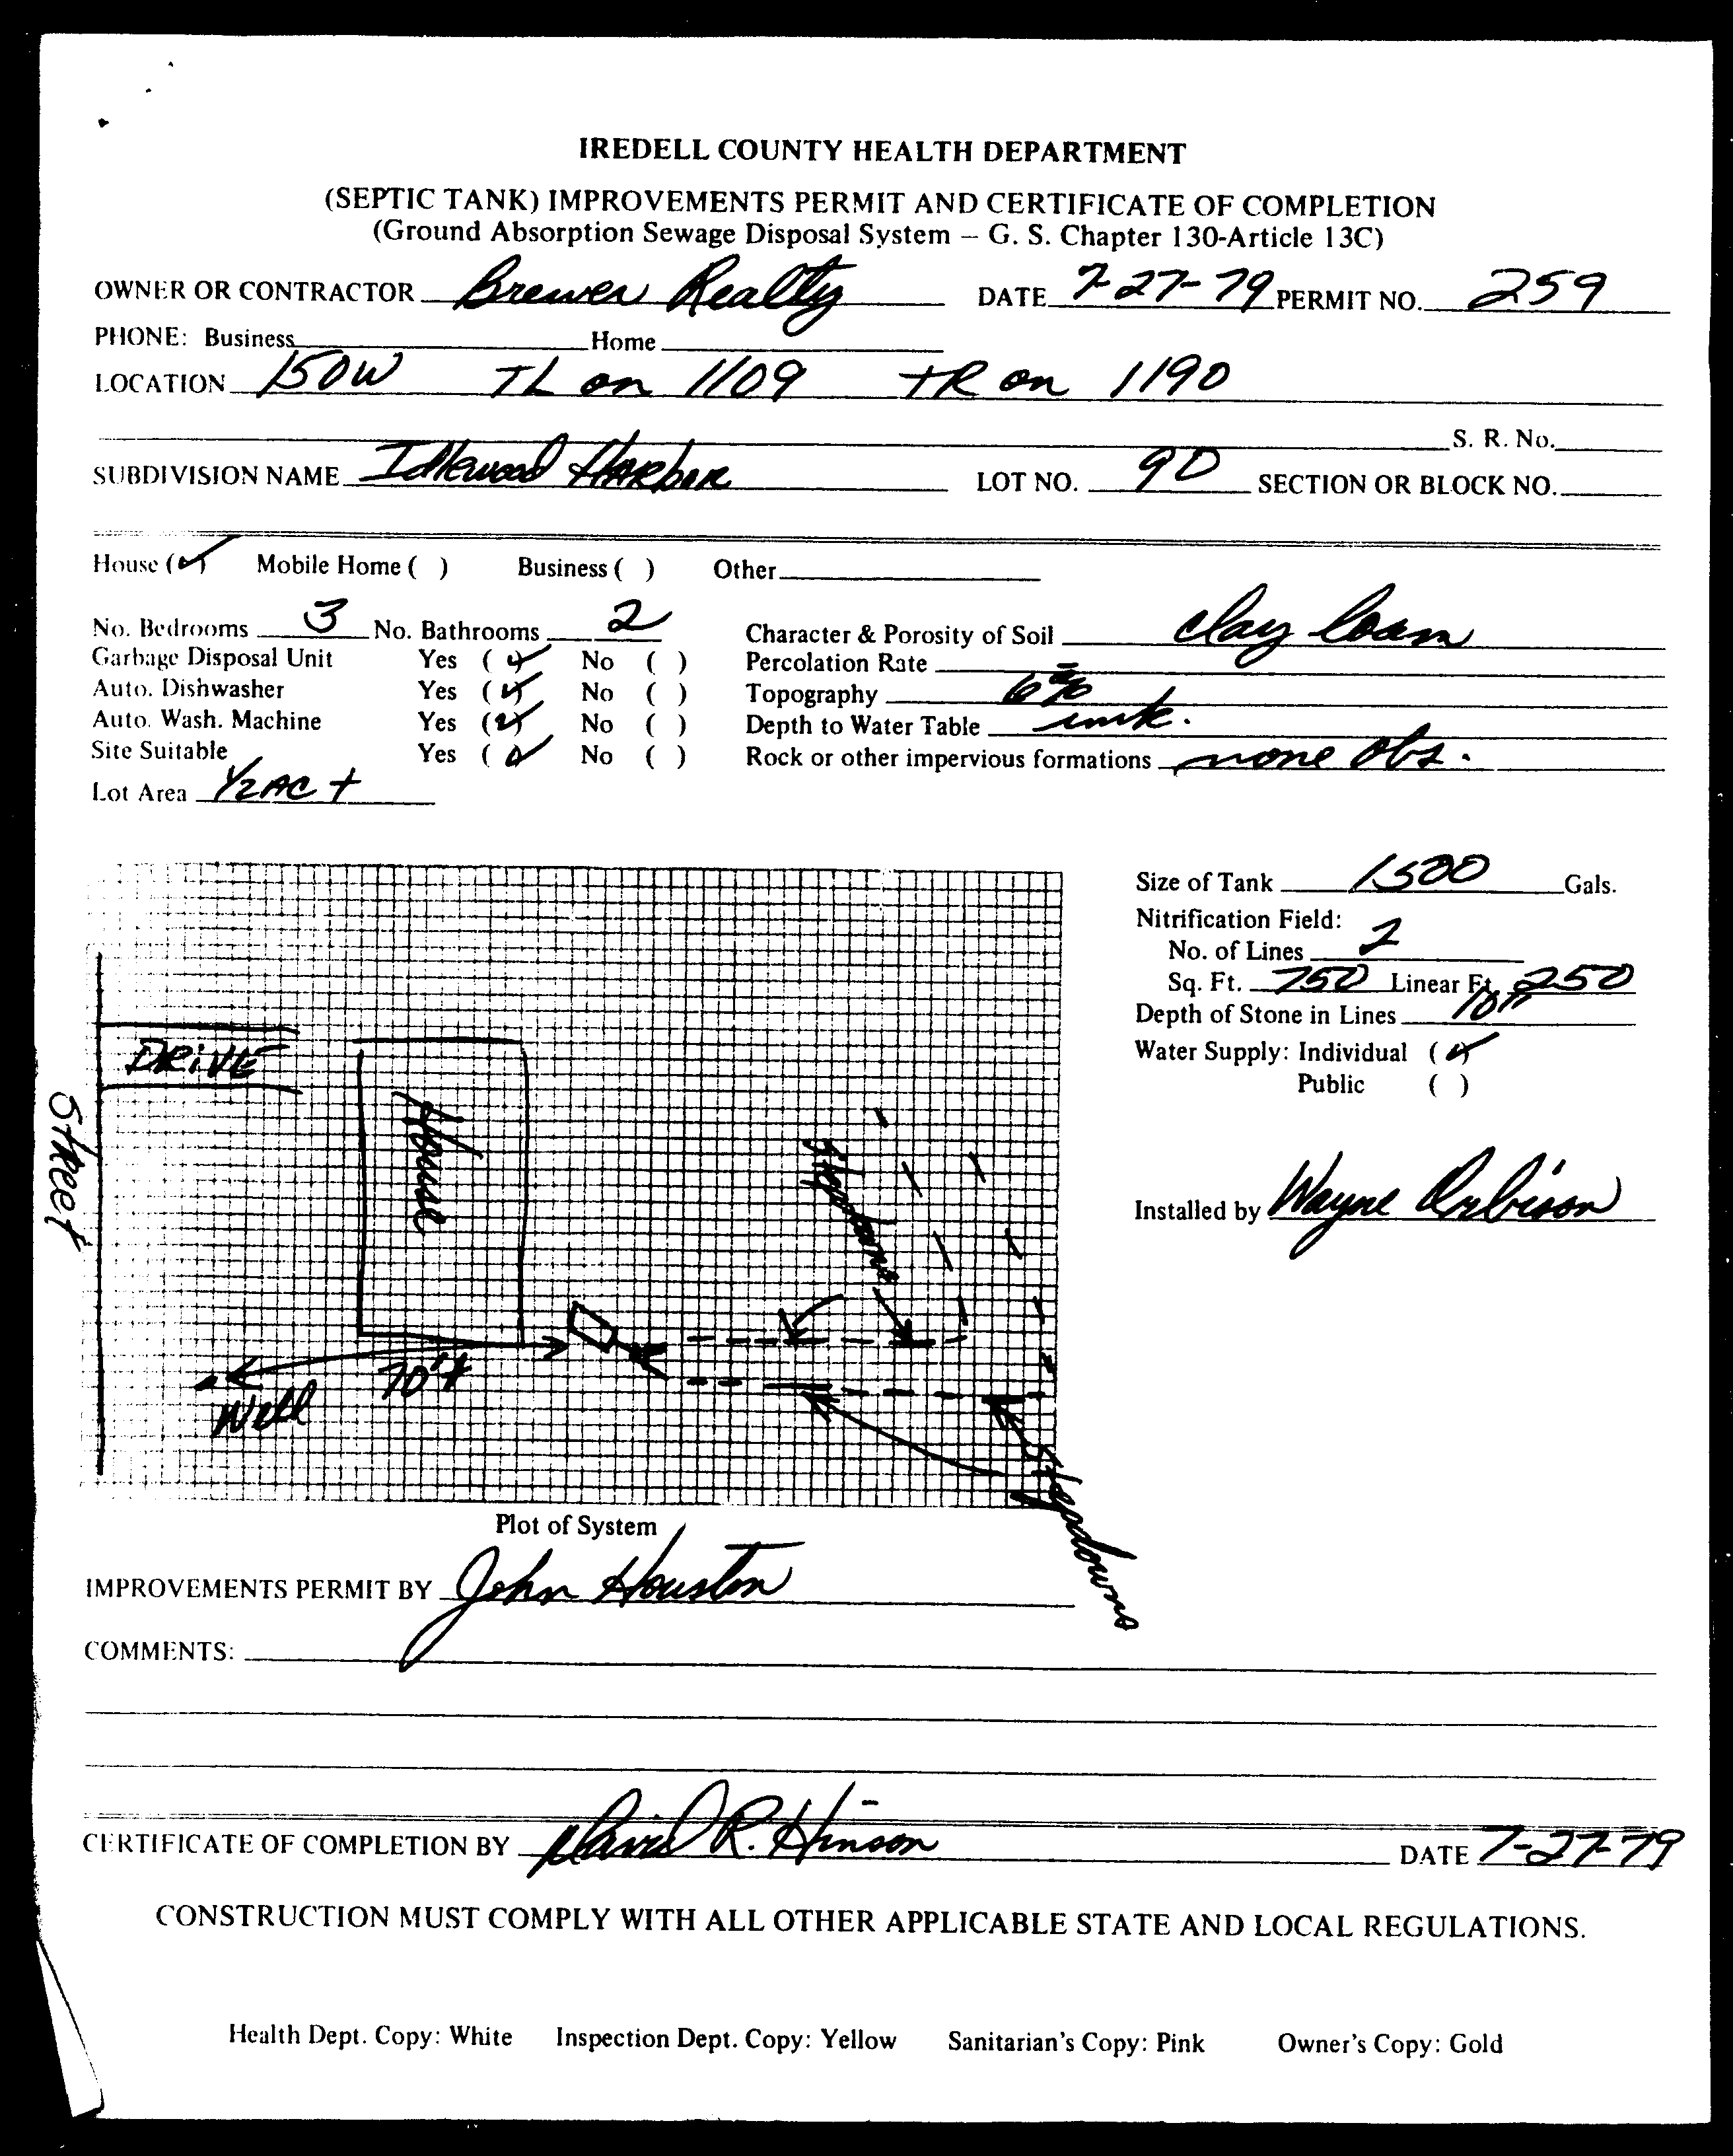 IREDELL COUNTY HEALTH DEPARTMENT
(SEPTIC TANK) IMPROVEMENTS PERMIT AND CERTIFICATE OF COMPLETION
(Ground Absorption Sewage Disposal System – G. S. Chapter 130-Article 13C)
OWNER OR CONTRACTOR Brewer Realty DATE 7-27-79 PERMIT NO. 259
PHONE: Business Home
LOCATION 150W TL on 1109 TR on 1190
S. R. No.
SUBDIVISION NAME Idlewood Harbor LOT NO. 9D SECTION OR BLOCK NO.
House (✓) Mobile Home ( ) Business ( ) Other
No. Bedrooms 3 No. Bathrooms 2 Character & Porosity of Soil clay loam
Garbage Disposal Unit Yes (✓) No ( ) Percolation Rate
Auto. Dishwasher Yes (✓) No ( ) Topography 6%
Auto. Wash. Machine Yes (✓) No ( ) Depth to Water Table unk.
Site Suitable Yes (✓) No ( ) Rock or other impervious formations none obs.
Lot Area 1/2 AC +
Size of Tank 1500 Gals.
Nitrification Field:
No. of Lines 2
Sq. Ft. 750 Linear Ft. 250
Depth of Stone in Lines 10"
Water Supply: Individual (✓)
Public ( )
DRIVE
Street
House
Stepdowns
Installed by Wayne Orbison
70'+
Well
Stepdowns
Plot of System
IMPROVEMENTS PERMIT BY John Houston
COMMENTS:
CERTIFICATE OF COMPLETION BY David R. Hinson DATE 7-27-79
CONSTRUCTION MUST COMPLY WITH ALL OTHER APPLICABLE STATE AND LOCAL REGULATIONS.
Health Dept. Copy: White Inspection Dept. Copy: Yellow Sanitarian's Copy: Pink Owner's Copy: Gold